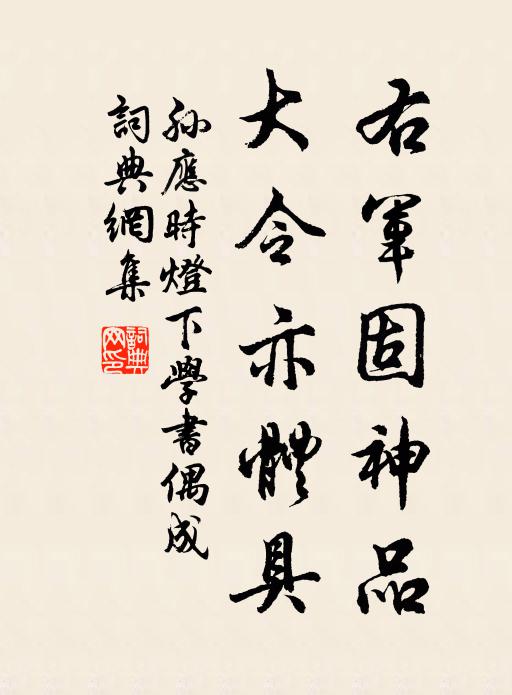 右軍固神品
大令亦體具
孫應時燈下學書偶成
詞典網集
詞典网印